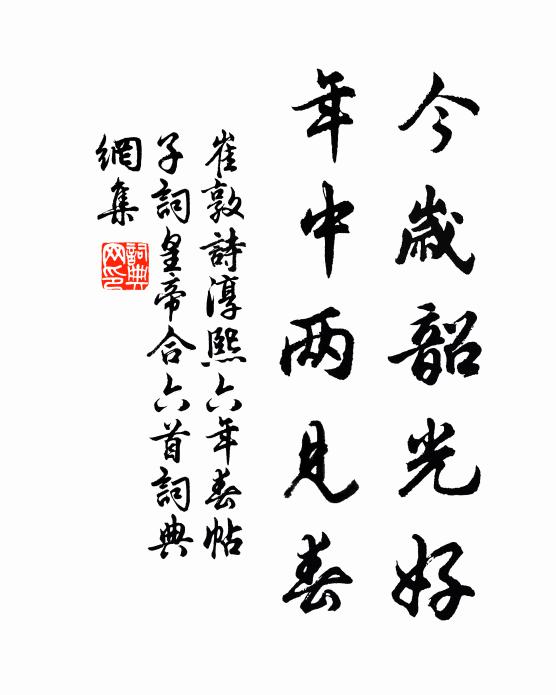 今歲韶光好
年中両見春
崔敦詩淳熙六年春帖
子詞皇帝合六首詞典
網集
詞典
网印